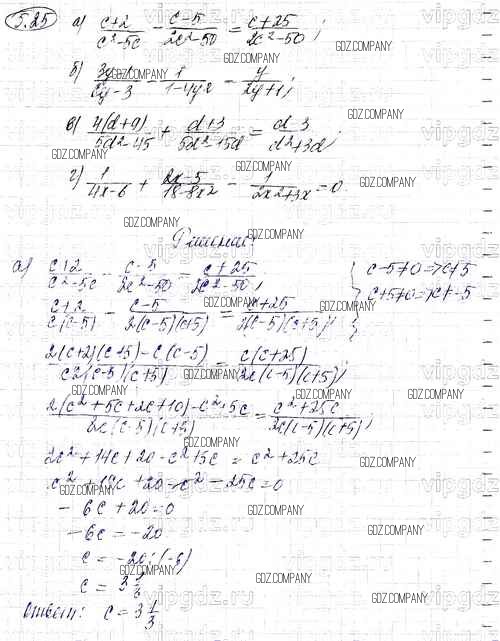 5.25 а) (c+2)/(c²-5c) - (c-5)/(2c²-50) = (c+25)/(2c²-50);
в) 4(d+9)/(5d²-45) + (d+3)/(5d²+5d) = (d-3)/(d²+3d);
г) 1/(4x-6) + (2x-5)/(18-8x²) - 1/(2x²+3x) = 0.
Решение:
а) (c+2)/(c²-5c) - (c-5)/(2c²-50) = (c+25)/(2c²-50); c-5≠0 => c≠5
(c+2)/(c(c-5)) - (c-5)/(2(c-5)(c+5)) = (c+25)/(2(c-5)(c+5)); c+5≠0 => c≠-5
(2(c+2)(c+5)-c(c-5))/(c2(c-5)(c+5)) = c(c+25)/(2c(c-5)(c+5));
(2(c²+5c+2c+10)-c²+5c)/(2c(c-5)(c+5)) = (c²+25c)/(2c(c-5)(c+5));
2c²+14c+20-c²+5c = c²+25c
-6c+20=0
-6c=-20
c=-20:(-6)
Ответ: c=3 1/3
GDZ.COMPANY
vipgdz.ru